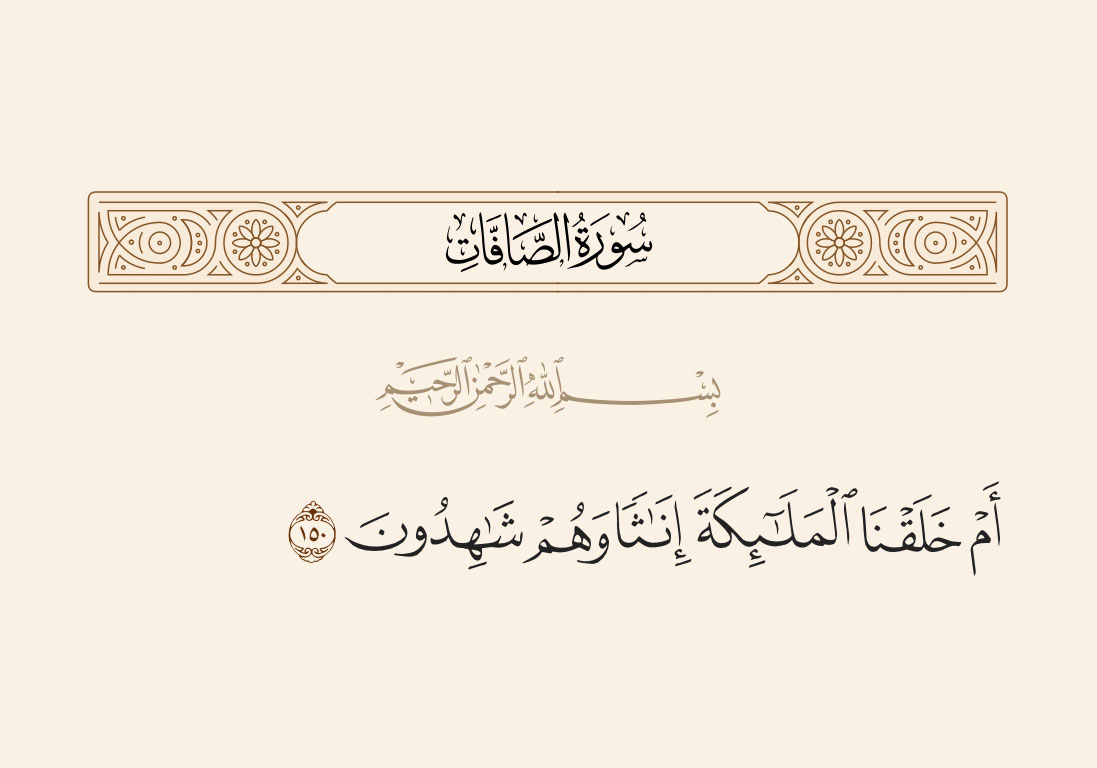 سُورَةُ الصَّافَّاتِ
بِسْمِ ٱللَّهِ ٱلرَّحْمَٰنِ ٱلرَّحِيمِ
أَمْ خَلَقْنَا ٱلْمَلَٰٓئِكَةَ إِنَٰثًا وَهُمْ شَٰهِدُونَ ١٥٠